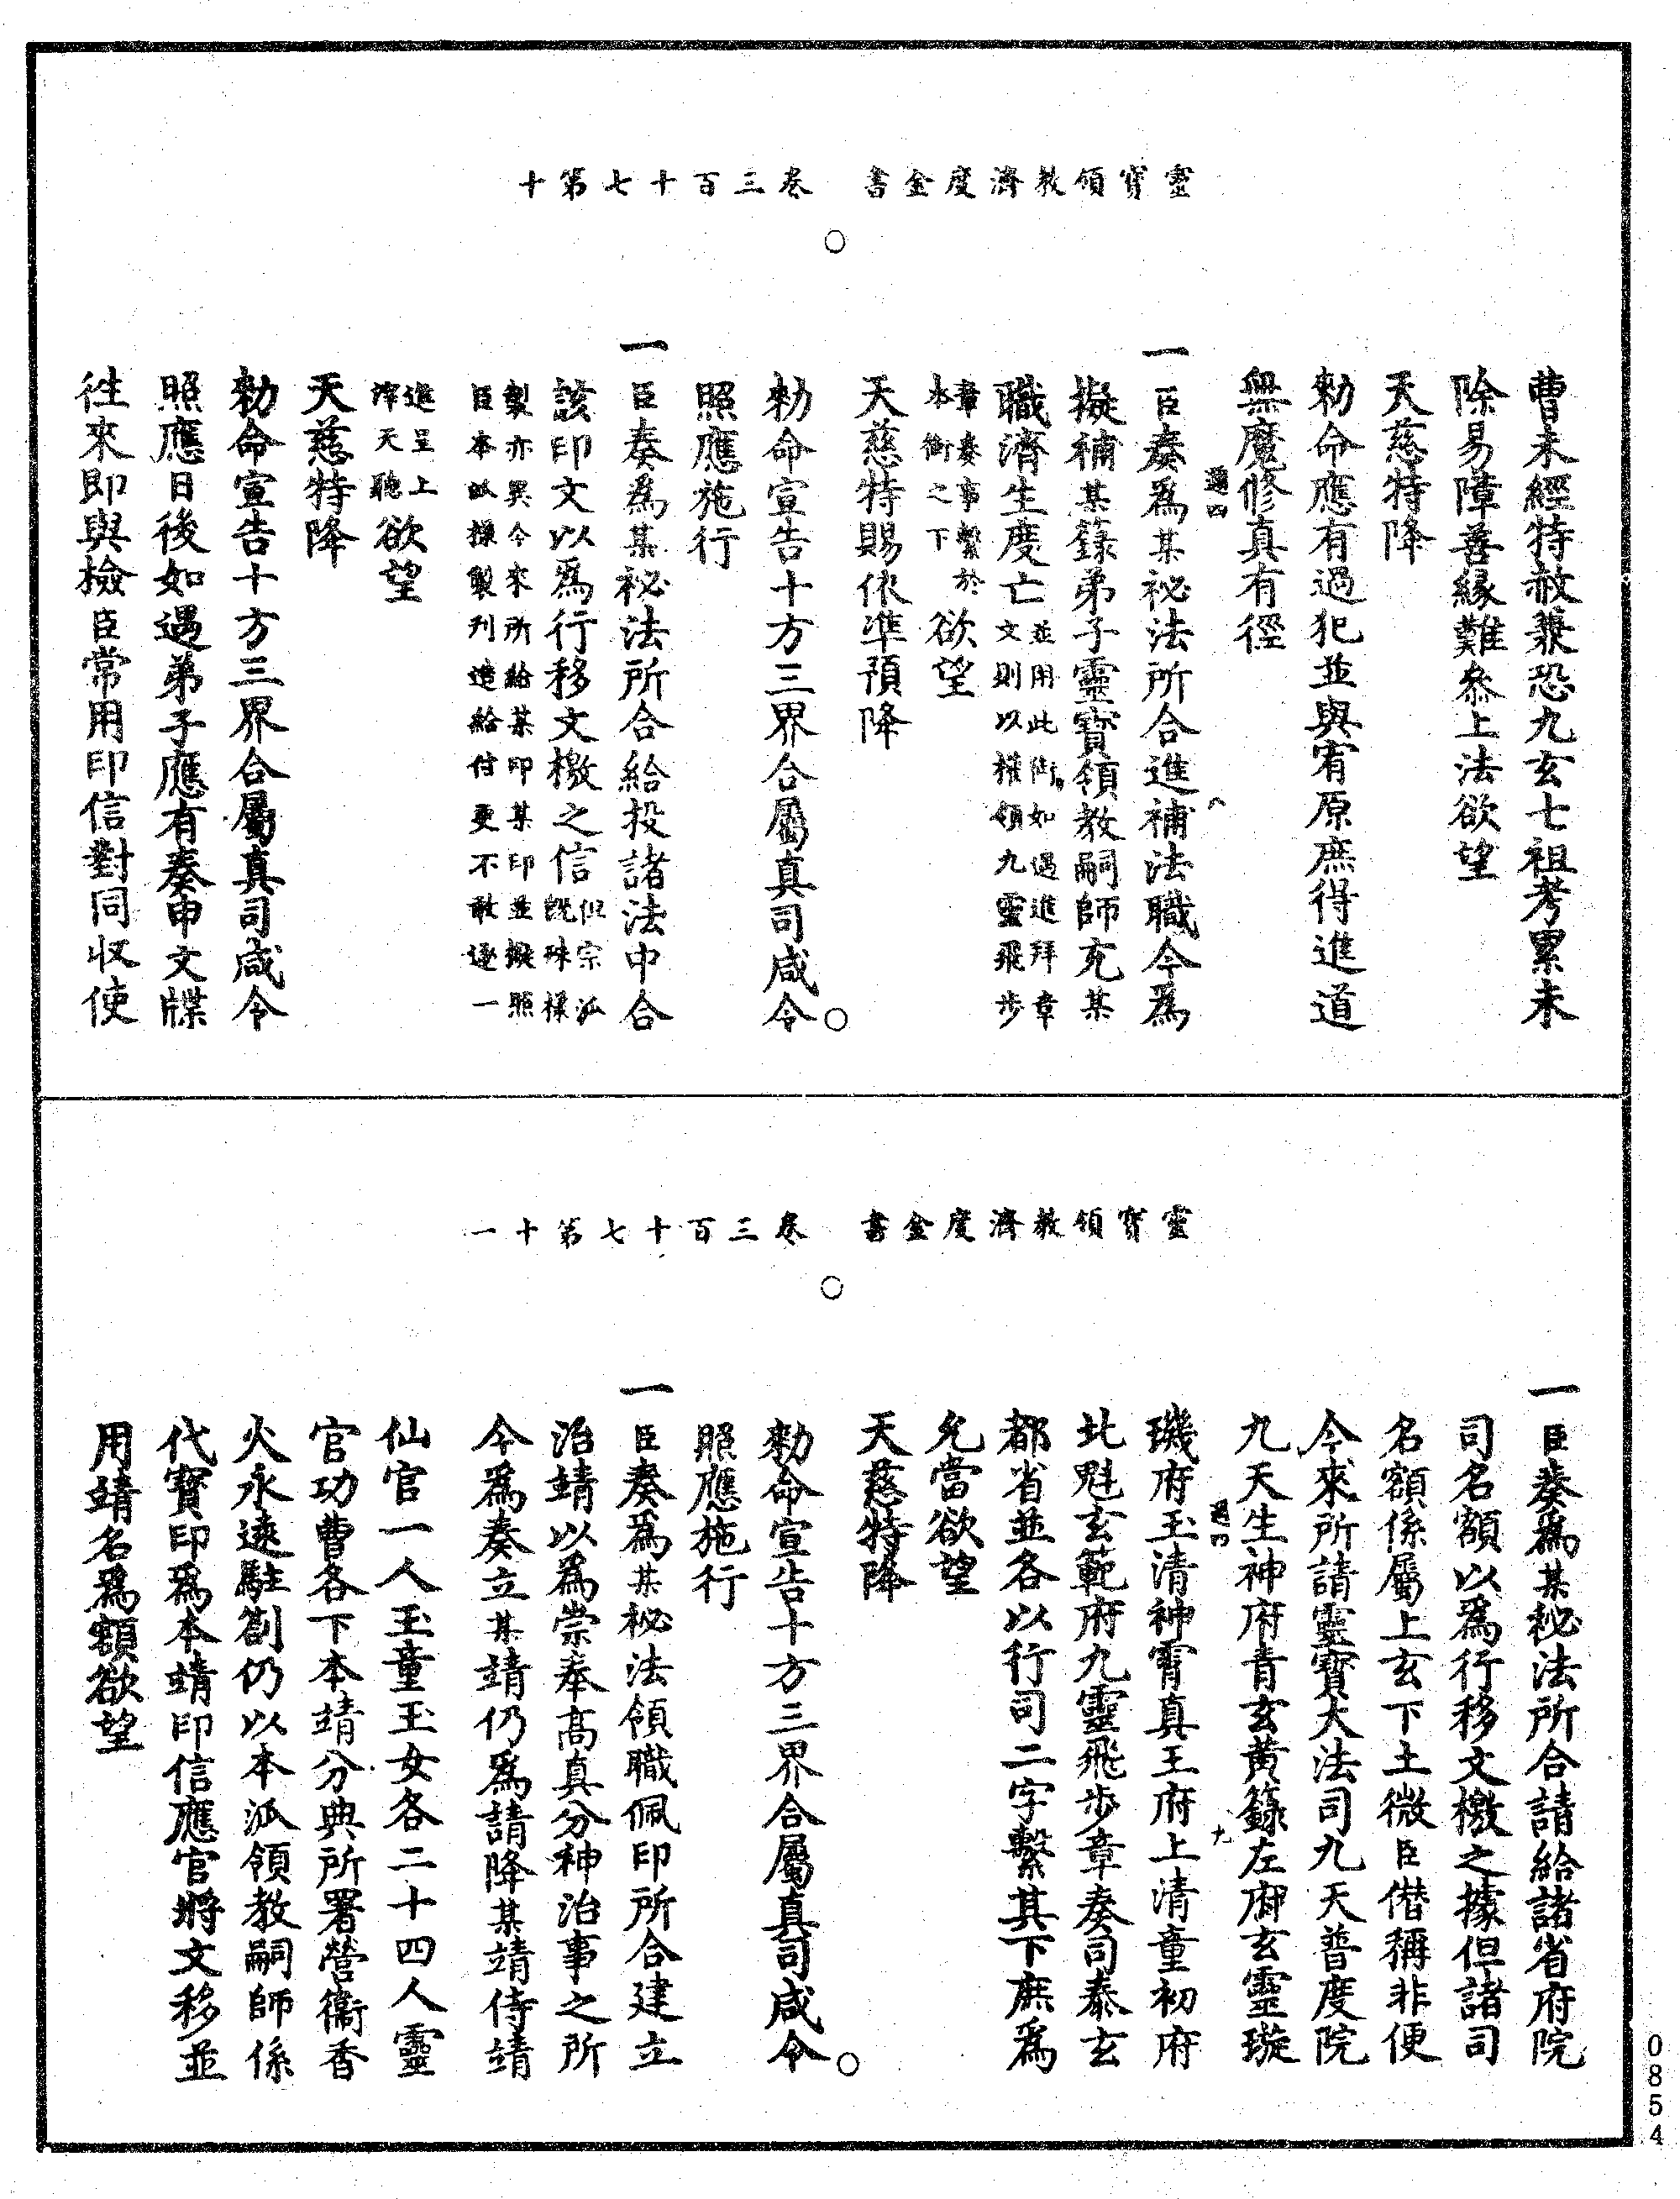 靈寶領教濟度金書　卷三百十七第十
曹未經特赦兼恐九玄七祖考累未
除易障善緣難叅上法欲望
天慈特降
勑命應有過犯並與宥原庶得進道
無魔修真有徑
一臣奏爲某祕法所合進補法職今爲
擬補某籙弟子靈寶領教嗣師充某
職濟生度亡並用此銜如遇進拜章
文則以權領九靈飛步
章奏事繫於
本銜之下欲望
天慈特賜依準預降
勑命宣告十方三界合屬真司咸令
照應施行
一臣奏爲某祕法所合給投諸法中合
該印文以爲行移文檄之信但宗派
既殊樣
製亦異今來所給某印某印並擬照
臣本派樣製刋造給付更不敢逐一
進呈上
瀆天聽欲望
天慈特降
勑命宣告十方三界合屬真司咸令
照應日後如遇弟子應有奏申文牒
徃來即與檢臣常用印信對同収使
靈寶領教濟度金書　卷三百十七第十一
一臣奏爲某祕法所合請給諸省府院
司名額以爲行移文檄之據但諸司
名額係屬上玄下土微臣僣稱非便
今來所請靈寶大法司九天普度院
九天生神府青玄黃籙左府玄靈璇
璣府玉清神霄真王府上清童初府
北魁玄範府九靈飛步章奏司泰玄
都省並各以行司二字繫其下庶爲
允當欲望
天慈特降
勑命宣告十方三界合屬真司咸令
照應施行
一臣奏爲某祕法領職佩印所合建立
治靖以爲崇奉高真分神治事之所
今爲奏立某靖仍爲請降某靖侍靖
仙官一人玉童玉女各二十四人靈
官功曹各下本靖分典所署營衞香
火永遠駐劄仍以本派領教嗣師係
代寶印爲本靖印信應官將文移並
用靖名爲額欲望
0854